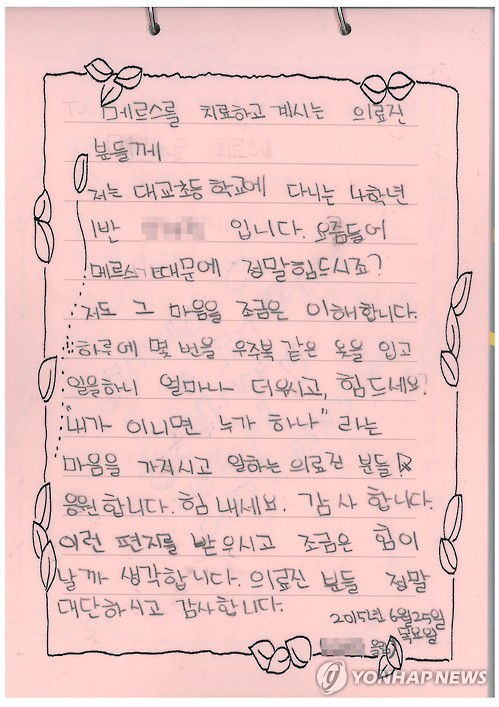 메르스를 치료하고 계시는 의료진
분들께
저는 대교초등학교에 다니는 4학년
1반 입니다. 요즘들어
메르스 때문에 정말힘드시죠?
저도 그 마음을 조금은 이해합니다.
하루에 몇 번을 우주복 같은 옷을 입고
일을하니 얼마나 더우시고, 힘드세요?
"내가 아니면 누가 하나" 라는
마음을 가져시고 일하는 의료진 분들!
응원합니다. 힘내세요. 감사합니다.
이런 편지를 받으시고 조금은 힘이
날까 생각합니다. 의료진 분들 정말
대단하시고 감사합니다.
2015년 6월 25일
목요일
올림
YONHAPNEWS